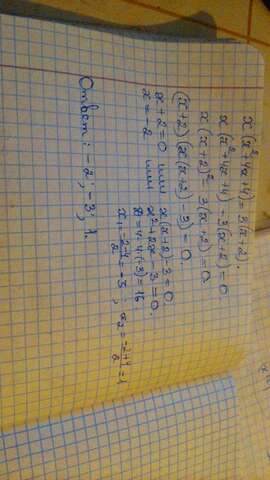 x(x²+4x+4)=3(x+2).
x(x²+4x+4)-3(x+2)=0.
x(x+2)²-3(x+2)=0.
(x+2)(x(x+2)-3)=0.
x+2=0 или x(x+2)-3=0.
x=-2 или x²+2x-3=0.
D=4-4·(-3)=16
x₁=(-2-4)/2=-3; x₂=(-2+4)/2=1
Ответ: -2; -3; 1.